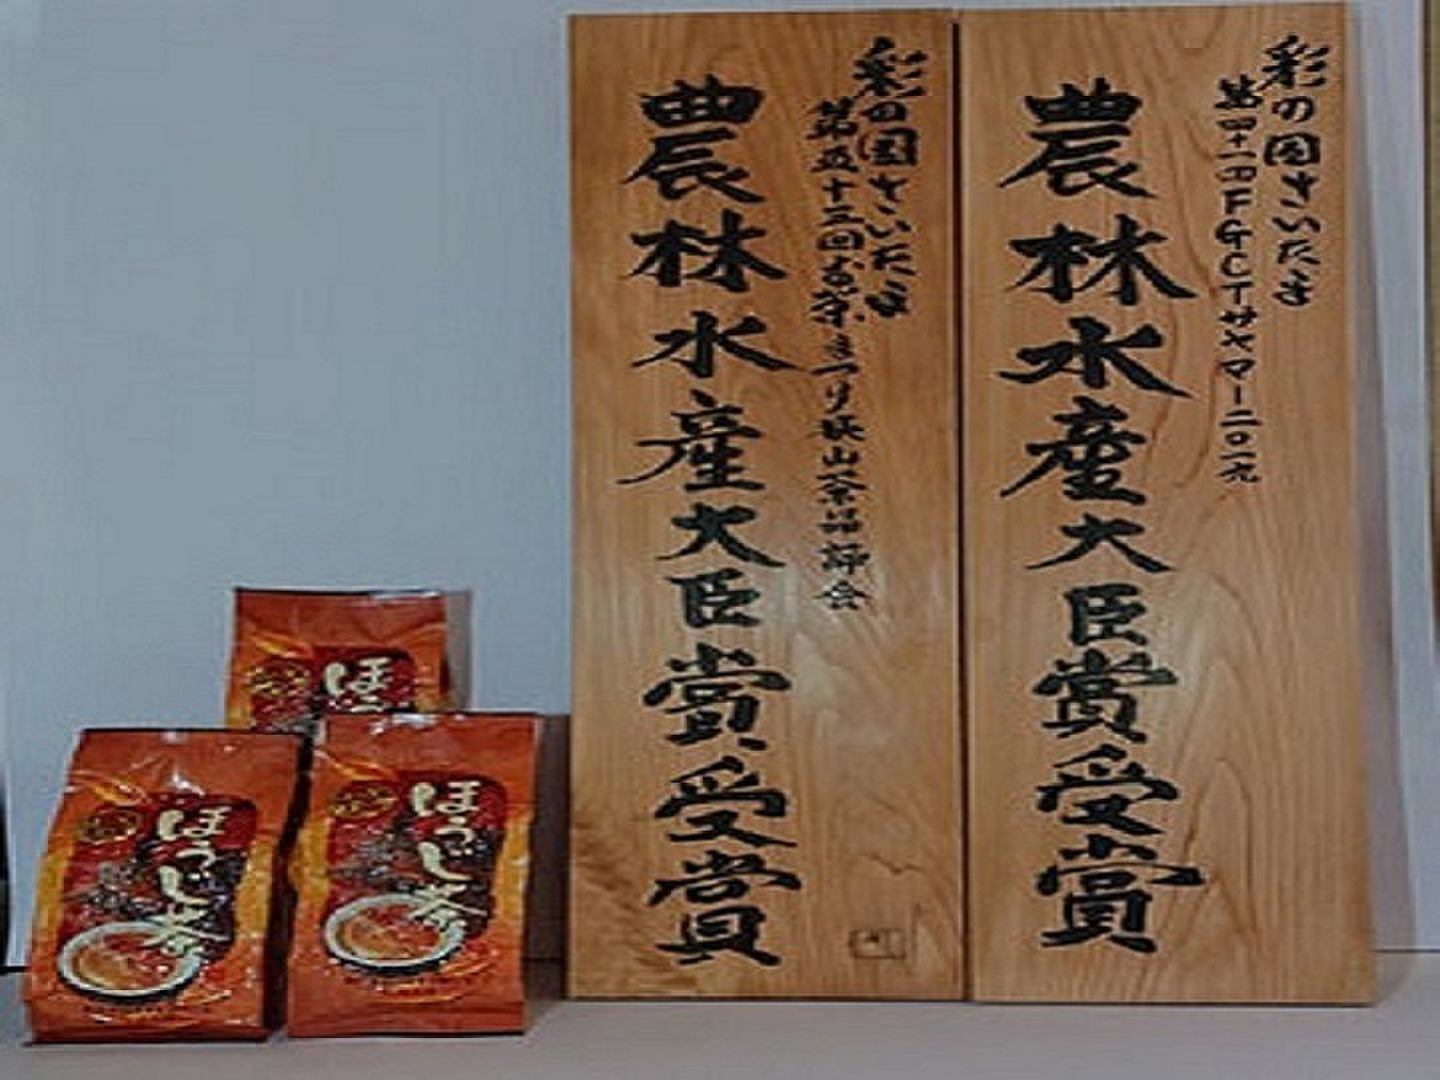 彩の国さいたま
第四十一回FGCTサヤマー二〇一九
農林水産大臣賞受賞
彩の国さいたま
第五十三回お茶まつり狭山茶品評会
農林水産大臣賞受賞
ほ
ほうじ茶
ほうじ茶